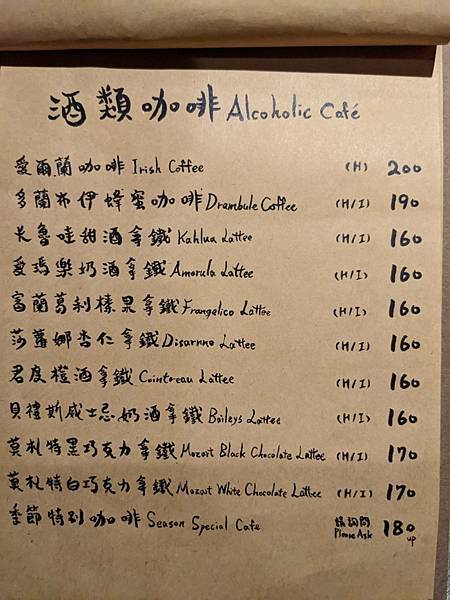 酒類咖啡 Alcoholic Café
愛爾蘭咖啡 Irish Coffee (H) 200
多蘭布伊蜂蜜咖啡 Drambule Coffee (H/I) 190
卡魯哇甜酒拿鐵 Kahlua Lattee (H/I) 160
愛瑪樂奶酒拿鐵 Amarula Lattee (H/I) 160
富蘭葛利榛果拿鐵 Frangelico Lattee (H/I) 160
莎蘿娜杏仁拿鐵 Disarnno Lattee (H/I) 160
君度橙酒拿鐵 Cointreau Lattee (H/I) 160
貝禮斯威士忌奶酒拿鐵 Baileys Lattee (H/I) 160
莫札特黑巧克力拿鐵 Mozart Black Chocolate Lattee (H/I) 170
莫札特白巧克力拿鐵 Mozart White Chocolate Lattee (H/I) 170
季節特別咖啡 Season Special Cafe 請詢問 Please Ask 180 up